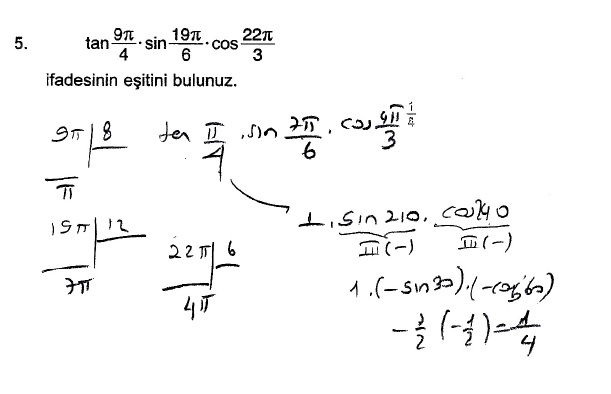 5. tan 9π/4 · sin 19π/6 · cos 22π/3
ifadesinin eşitini bulunuz.
9π | 8
π
tan π/4 . sin 7π/6 . cos 4π/3
19π | 12
7π
22π | 6
4π
1 . sin 210 . cos 240
III (-) III (-)
1 . (-sin 30) . (-cos 60)
- 1/2 (- 1/2) = 1/4